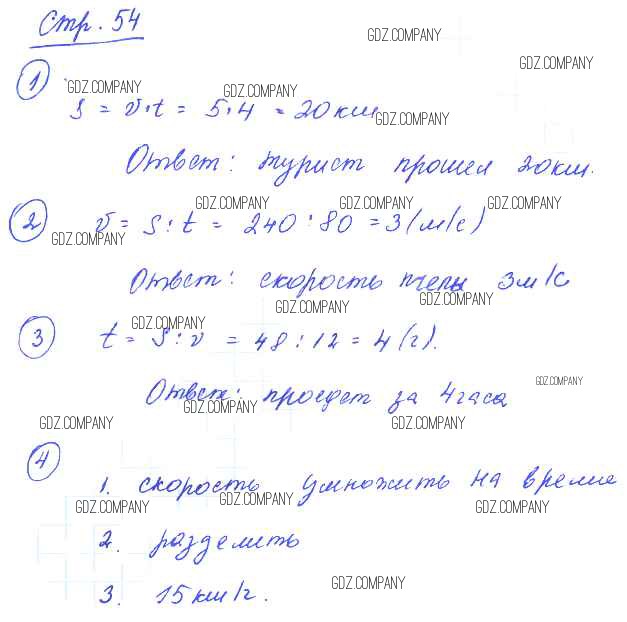 Стр. 54
GDZ.COMPANY
GDZ.COMPANY
1
GDZ.COMPANY
GDZ.COMPANY
S = v·t = 5·4 = 20 км
GDZ.COMPANY
Ответ: турист прошел 20 км.
GDZ.COMPANY GDZ.COMPANY GDZ.COMPANY
2 v = S : t = 240 : 80 = 3 (м/с)
GDZ.COMPANY
Ответ: скорость пчелы 3 м/с
GDZ.COMPANY GDZ.COMPANY
GDZ.COMPANY
3 t = S : v = 48 : 12 = 4 (г).
GDZ.COMPANY
Ответ: проедет за 4 часа
GDZ.COMPANY
GDZ.COMPANY GDZ.COMPANY
4
1. скорость умножить на время
GDZ.COMPANY GDZ.COMPANY GDZ.COMPANY
2. разделить
GDZ.COMPANY
3. 15 км/г.